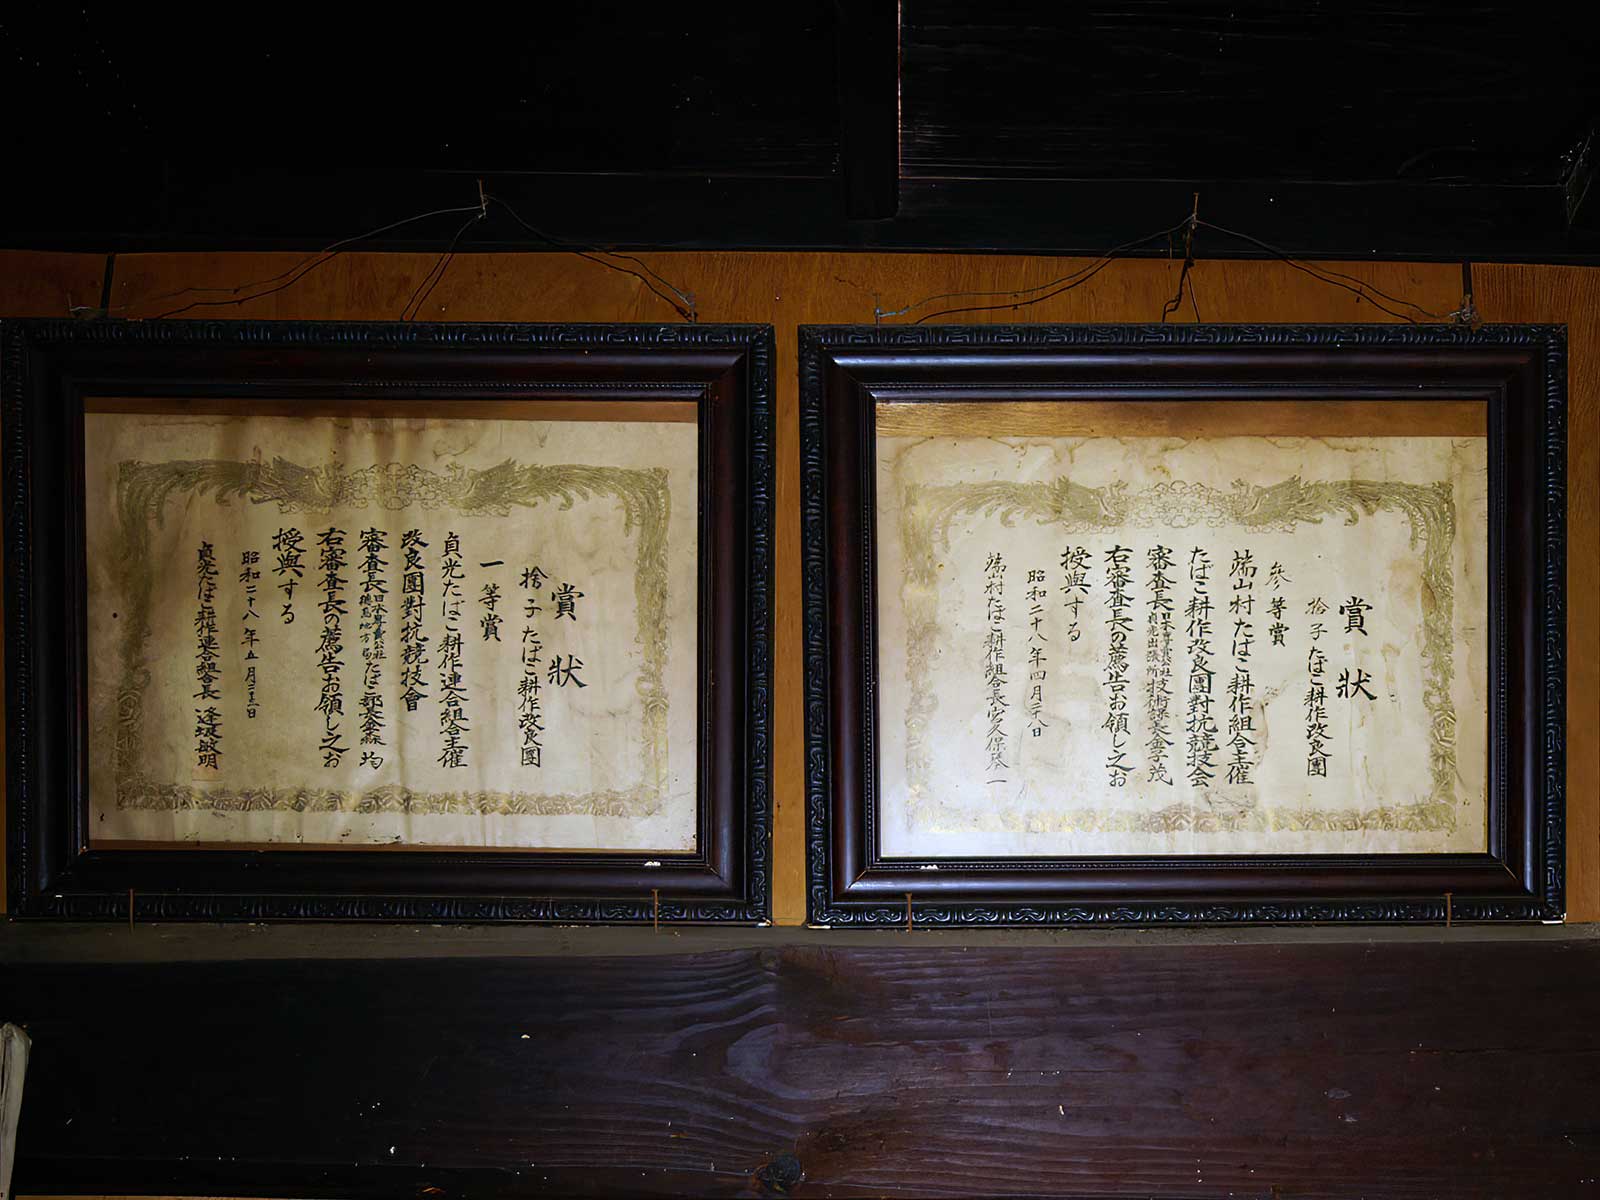 賞狀
捨子たばこ耕作改良團
一等賞
貞光たばこ耕作連合組合主催
改良團對抗競技會
審査長日本專賣公社徳島地方局たばこ部長 森 均
右審査長の薦告お領し之お
授與する
昭和二十八年五月
貞光たばこ耕作連合組合長 逢坂敏明
賞狀
捨子たばこ耕作改良團
參等賞
端山村たばこ耕作組合主催
たばこ耕作改良團對抗競技会
審査長日本專賣公社貞光出張所技術課長
右審査長の薦告お領し之お
授與する
昭和二十八年四月二十八日
端山村たばこ耕作組合長